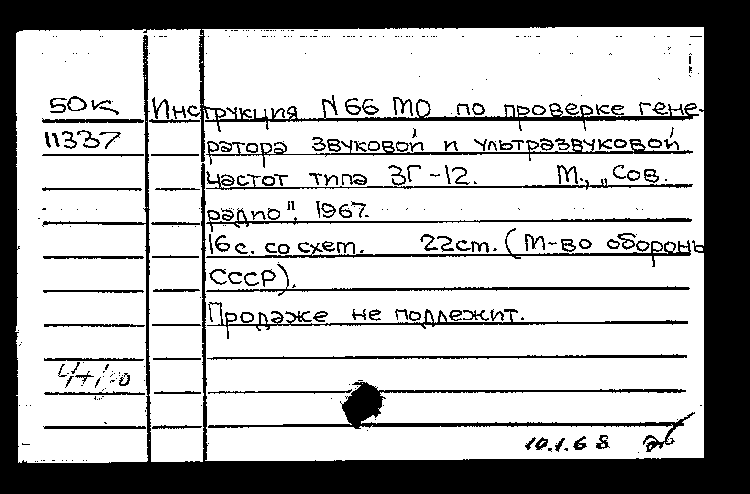 50К Инструкция N 66 МО по проверке гене-
11337 ратора звуковой и ультразвуковой
частот типа ЗГ-12. М., „Сов.
радио", 1967.
16 с. со схем. 22 см. (М-во оборонь
СССР).
Продаже не подлежит.
10.1.68